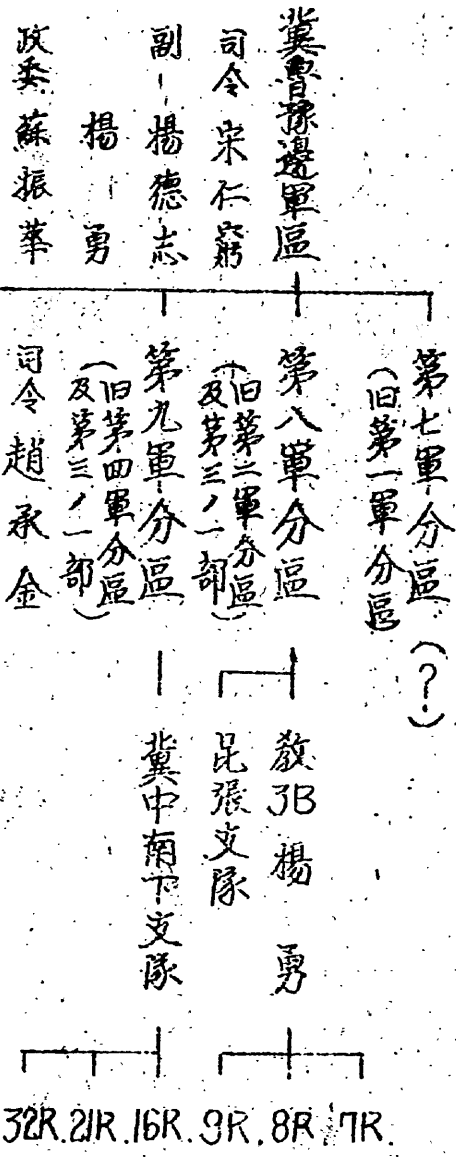 冀魯豫邊軍區
司令 宋仁窮
副〃 楊德志
楊勇
政委 蘇振華
第七軍分區(?)
(旧第一軍分區
第八軍分區
(旧第二軍分區
及第三ノ一部)
第九軍分區
(旧第四軍分區
及第三ノ一部)
司令 趙承金
教3B 楊勇
昆張支隊
冀中南下支隊
7R.
8R.
9R.
16R.
21R.
32R.